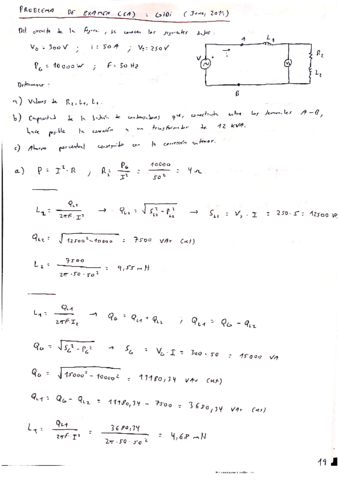 PROBLEMA DE EXAMEN (CA) : GIDI (Junio, 2015)
Del circuito de la figura, se conocen los siguientes datos:
V₀ = 300 V ; I = 50 A ; V₂ = 250 V
P_G = 10000 W ; F = 50 Hz
A L₁
V I R₂
L₂
B
Determinar:
a) Valores de R₂, L₁, L₂.
b) Capacidad de la batería de condensadores que, conectada entre los terminales A-B,
hace posible la conexión a un transformador de 12 kVA.
c) Ahorro porcentual conseguido con la conexión anterior.
a) P = I² · R ; R₂ = P_G / I² = 10000 / 50² = 4 Ω
L₂ = Q_L2 / 2πF · I² → Q_L2 = √(S_L2² - P_L2²) → S_L2 = V₂ · I = 250 · 50 = 12500 VA
Q_L2 = √(12500² - 10000²) = 7500 VAr (ind)
L₂ = 7500 / 2π · 50 · 50² = 9,55 mH
L₁ = Q_L1 / 2πF I² → Q_G = Q_L1 + Q_L2 , Q_L1 = Q_G - Q_L2
Q_G = √(S_G² - P_G²) → S_G = V_G · I = 300 · 50 = 15000 VA
Q_G = √(15000² - 10000²) = 11180,34 VAr (ind)
Q_L1 = Q_G - Q_L2 = 11180,34 - 7500 = 3680,34 VAr (ind)
L₁ = Q_L1 / 2πF I² = 3680,34 / 2π · 50 · 50² = 4,68 mH
19